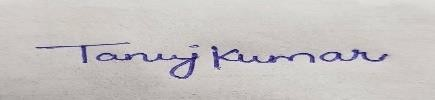 Tanuj Kumar